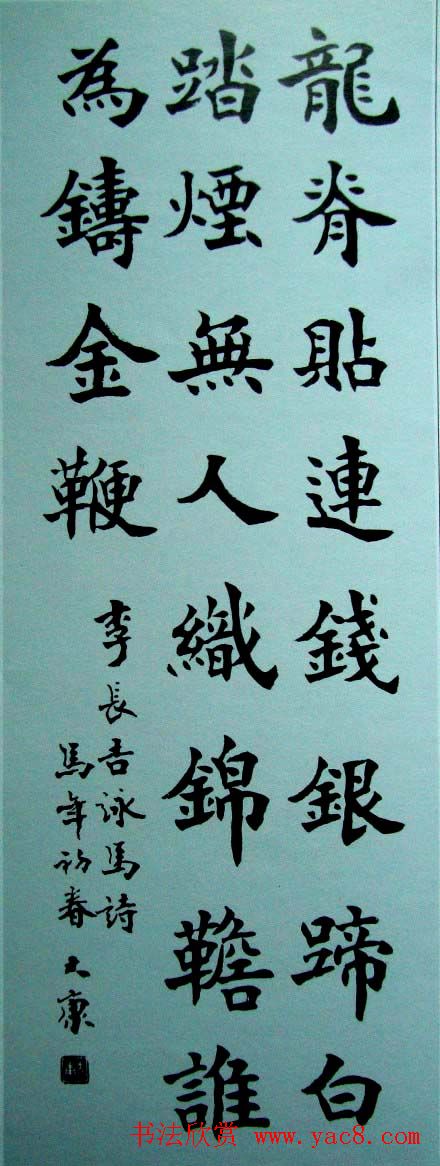 龍脊貼連錢銀蹄白
踏煙無人織錦韂誰
為鑄金鞭
李長吉詠馬詩
馬年初春大康
书法欣赏 www.yac8.com